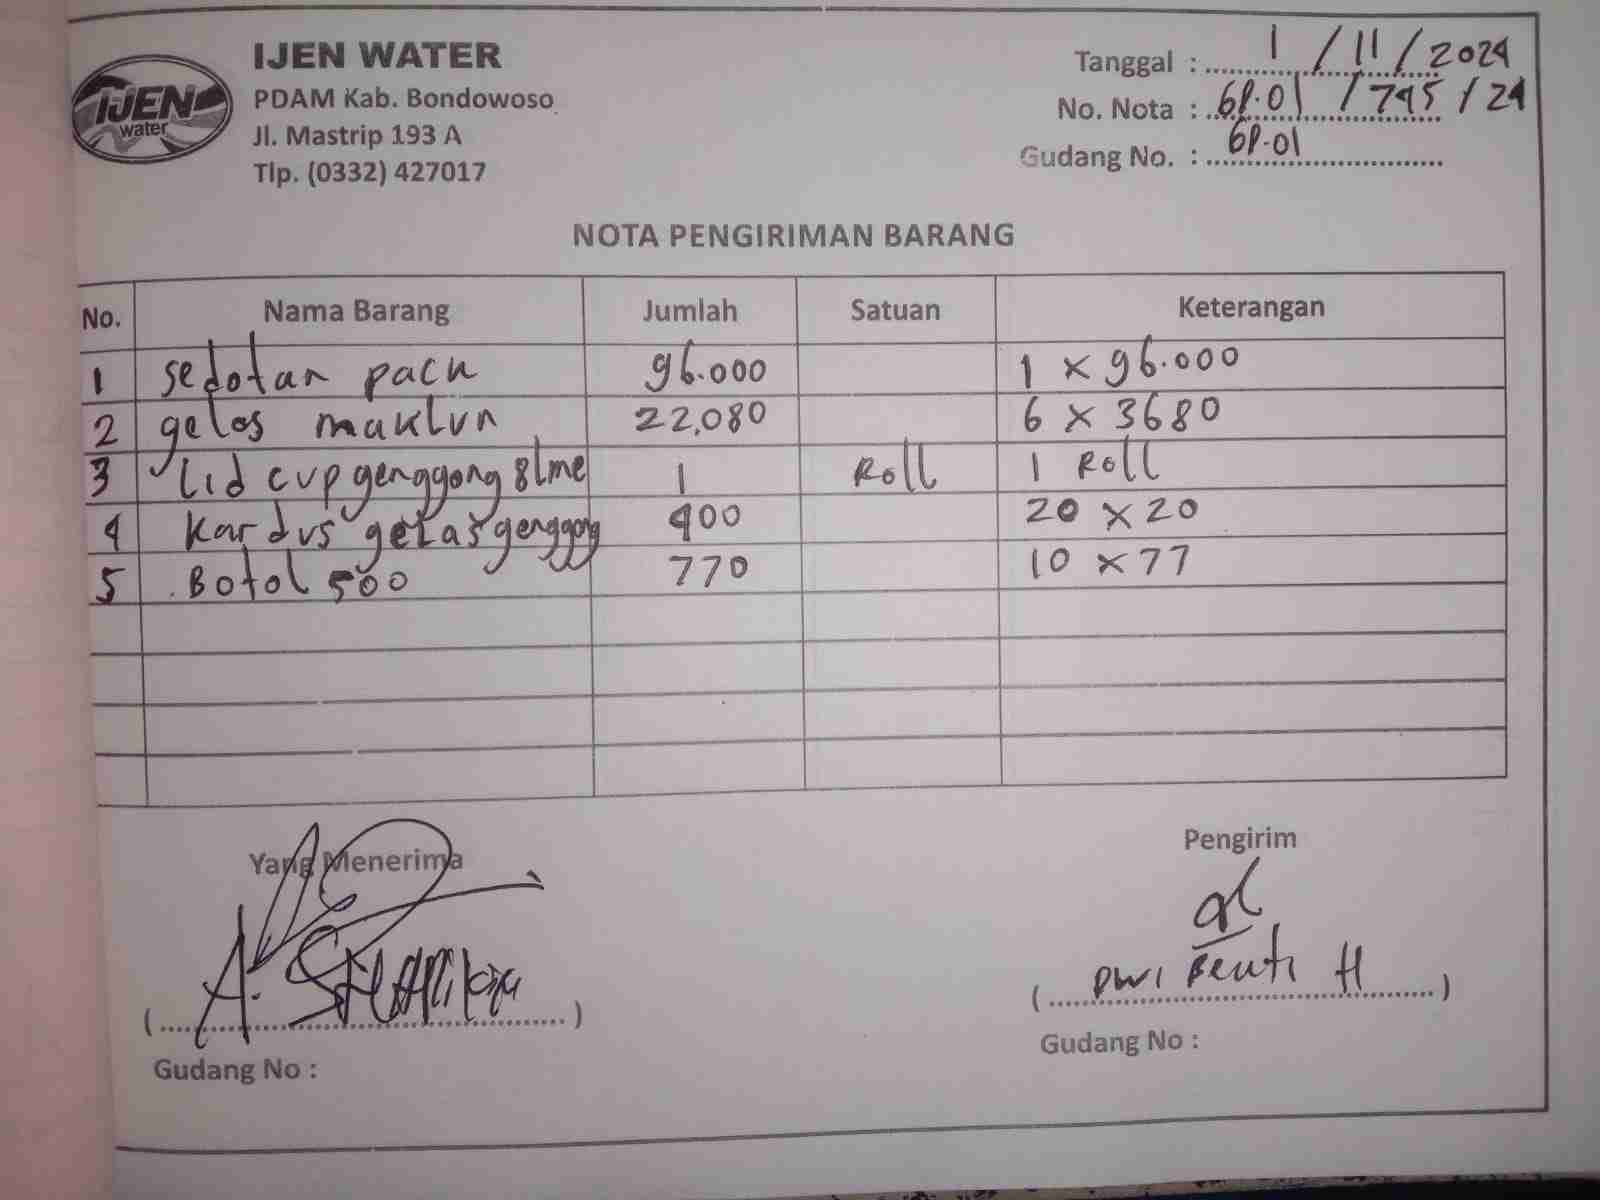 IJEN
water
IJEN WATER
PDAM Kab. Bondowoso
Jl. Mastrip 193 A
Tlp. (0332) 427017
Tanggal : 1 / 11 / 2024
No. Nota : GP.01 / 745 / 24
Gudang No. : GP.01
NOTA PENGIRIMAN BARANG
No. Nama Barang Jumlah Satuan Keterangan
1 sedotan pack 96.000 1 x 96.000
2 gelas maklun 22.080 6 x 3680
3 Lid cup genggong 8 line 1 Roll 1 Roll
4 Kardus gelas genggong 400 20 x 20
5 Botol 500 770 10 x 77
Yang Menerima
Pengirim
( A. )
( Dwi H )
Gudang No :
Gudang No :